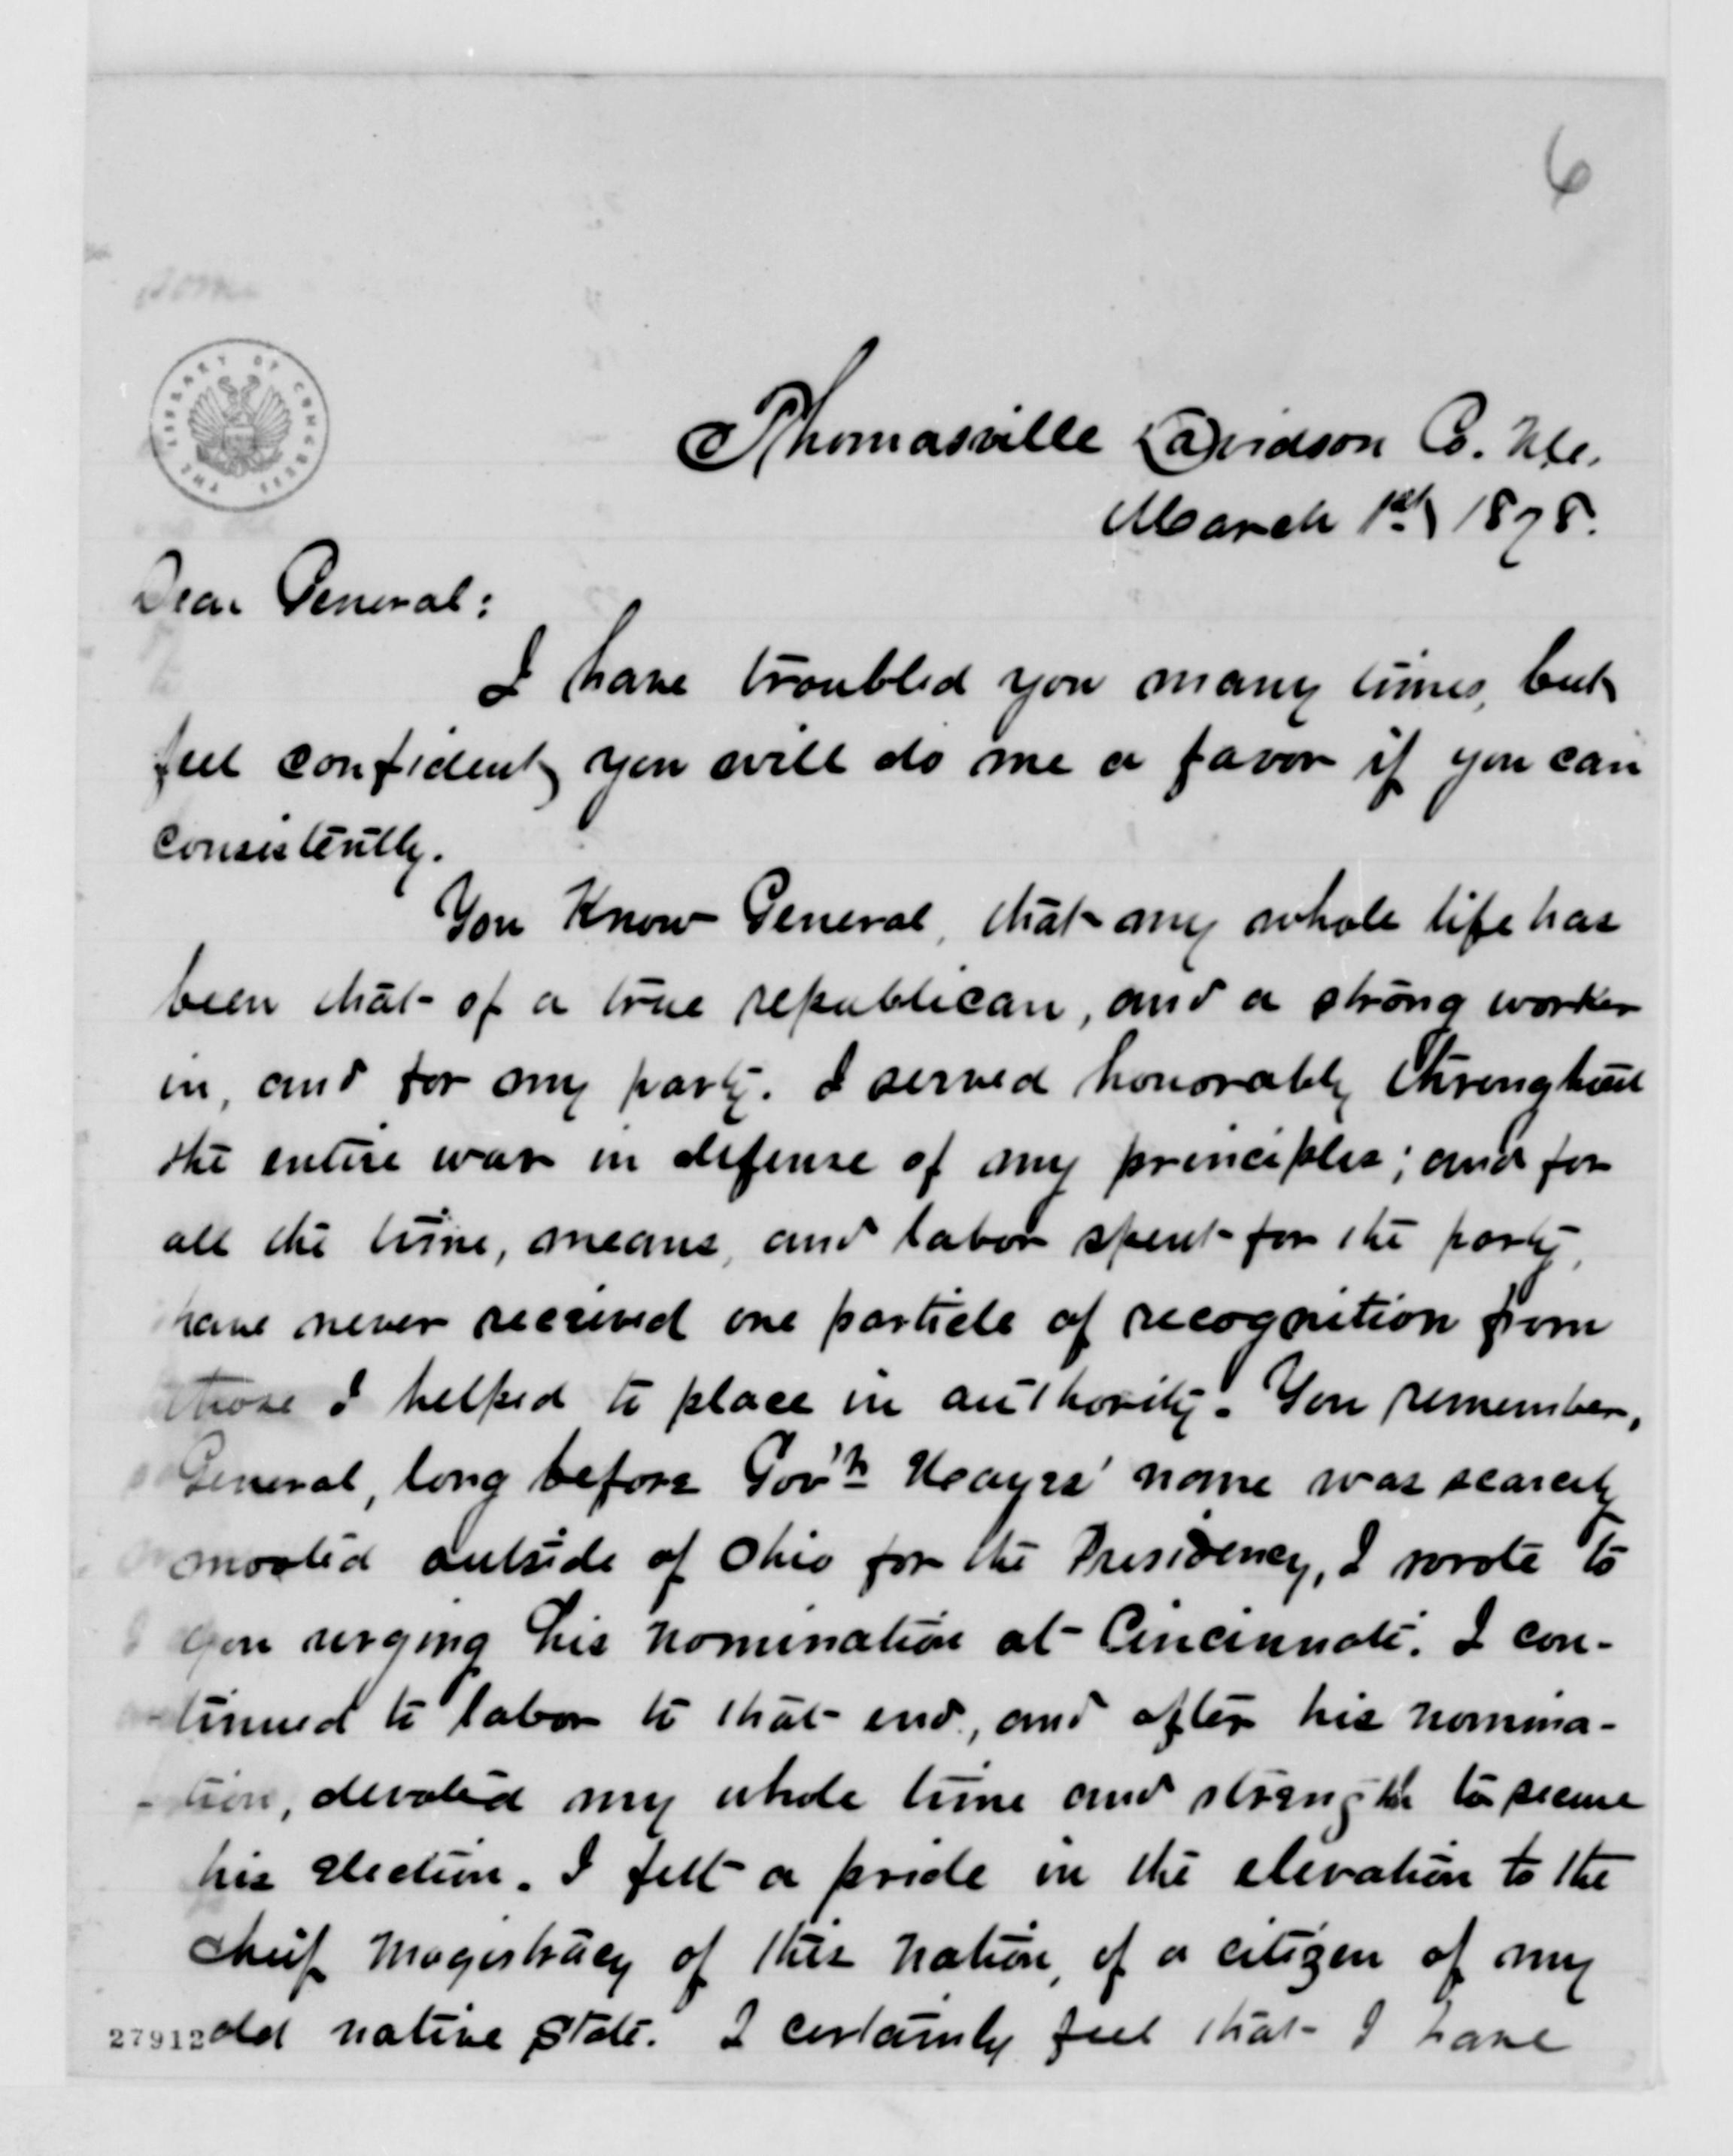 6
THE LIBRARY OF CONGRESS
Thomasville Davidson Co. N.C.
March 1st 1878.
Dear General:
I have troubled you many times, but
feel confident you will do me a favor if you can
consistently.
You Know General, that my whole life has
been that of a true republican, and a strong worker
in, and for my party. I served honorably throughout
the entire war in defense of my principles; and for
all the time, means, and labor spent for the party,
have never received one particle of recognition from
those I helped to place in authority. You remember,
General, long before Gov'r Hayes' name was scarcely
mooted outside of Ohio for the Presidency, I wrote to
you urging his nomination at Cincinnati. I con-
tinued to labor to that end, and after his nomina-
tion, devoted my whole time and strength to secure
his election. I felt a pride in the elevation to the
chief magistracy of this nation, of a citizen of my
old native state. I certainly feel that I have
27912